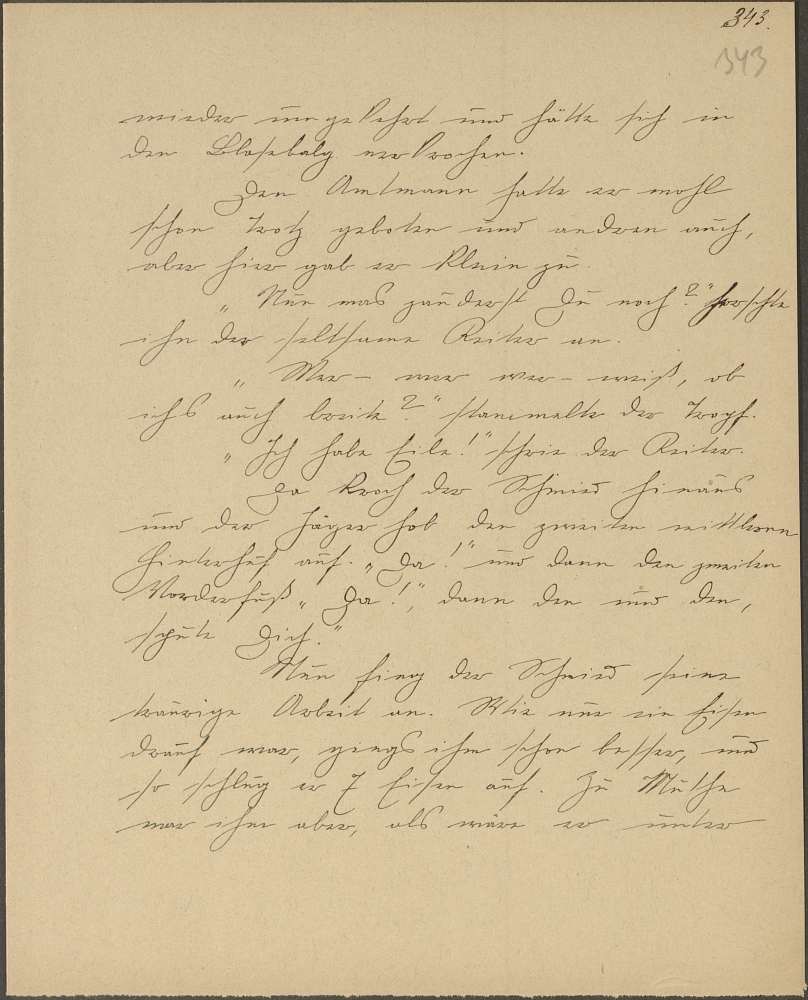 343.
343
wieder umgekehrt und hätte sich in
den Blasebalg verkrochen.
Den Amtmann hatte er wohl
schon Trotz geboten und andren auch,
aber hier gab er klein zu.
„Nun was zauderst Du noch?" herrschte
ihn der seltsame Reiter an.
„Wer – wer wer – weiß, ob
ichs auch breite?" stammelte der Tropf.
„Ich habe Eile!" schrie der Reiter.
Da kroch der Schmied hinaus
und der Jäger hob den zweiten mittlern
Hinterhuf auf. „Da!" und dann den zweiten
Vorderfuß „Da!", dann den und den,
spute Dich."
Nun fing der Schmied seine
traurige Arbeit an. Wie nur ein Eisen
drauf war, giengs ihm schon besser, und
so schlug er 7 Eisen auf. Zu Muthe
war ihm aber, als wäre er unter